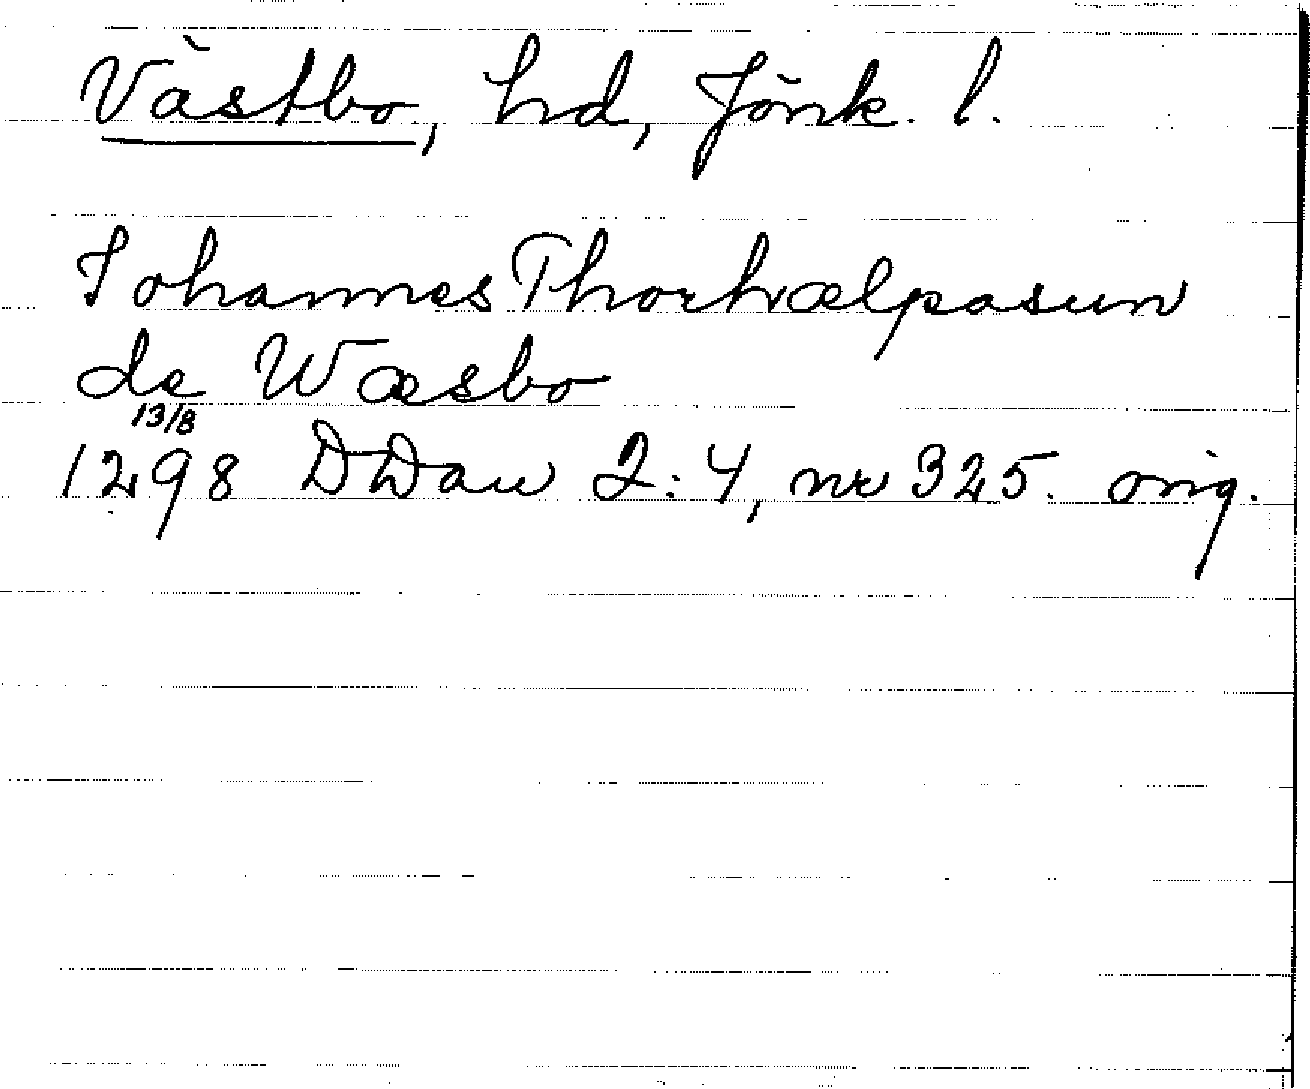 Västbo, hd, Jönk. l.
Johannes Thorhælpasun
de Wæsbo
13/8
1298 DDan 2:4, nr 325. orig.